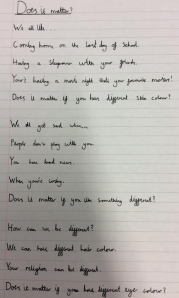 Does it matter?
We all like...
Coming home on the last day of school.
Having a sleepover with your friends.
You're having a movie night with your favourite movies!
Does it matter if you have different skin colour?
We all get sad when...
People don't play with you.
You have bad news.
When you're wrong.
Does it matter if you like something different?
How can we be different?
We can have different hair colour.
Your religion can be different.
Does it matter if you have different eye colour?